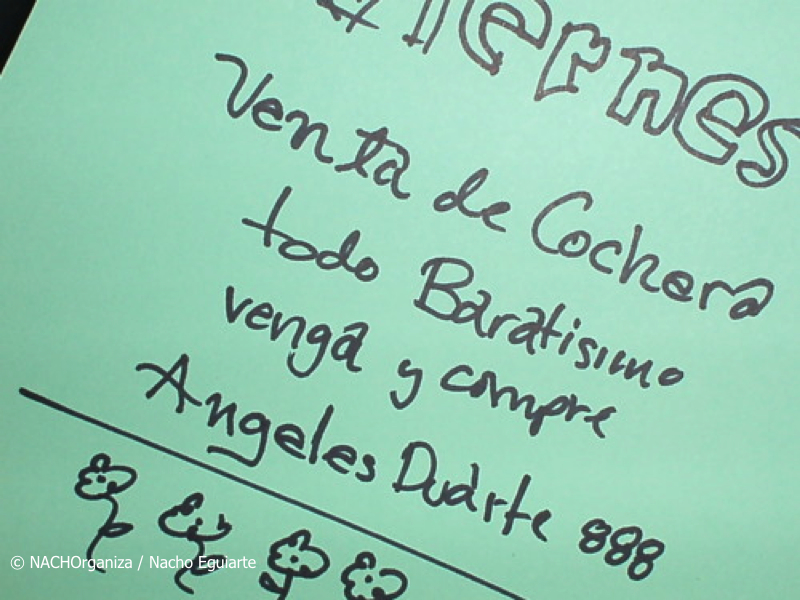 Viernes
Venta de Cochera
todo Baratisimo
venga y compre
Angeles Duarte 888
© NACHOrganiza / Nacho Eguiarte